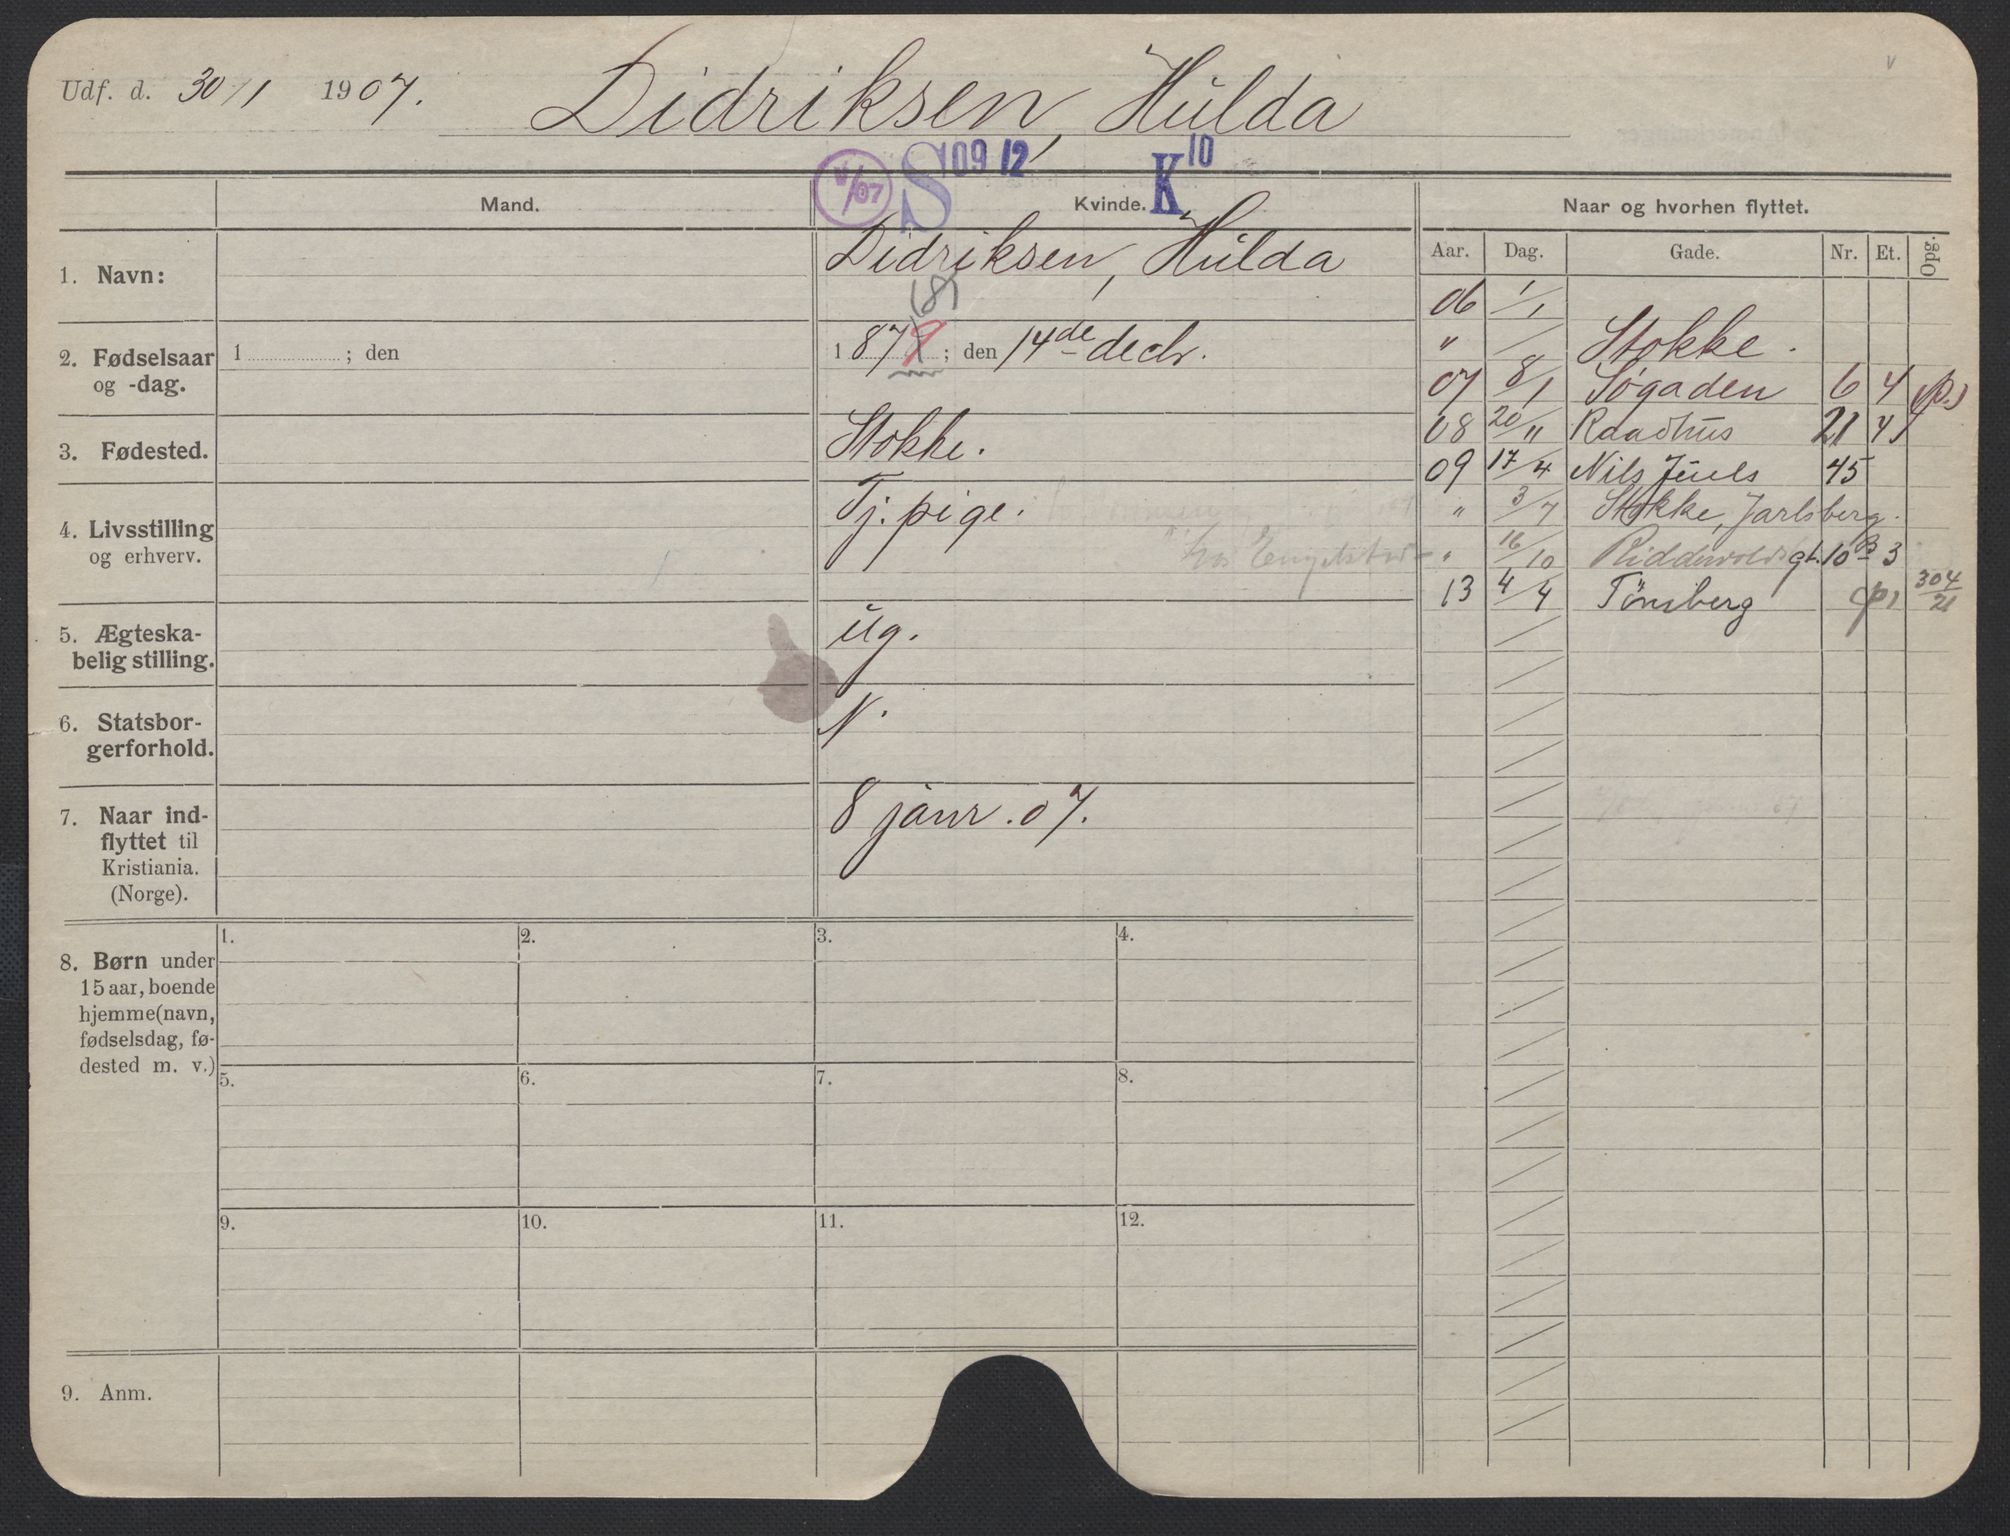 Udf. d. 30/1 1907. Didriksen, Hulda
V/07 S 09 12 K 10
Mand. Kvinde. Naar og hvorhen flyttet.
Aar. Dag. Gade. Nr. Et. Opg.
1. Navn: Didriksen, Hulda
2. Fødselsaar og -dag.
1 ; den
1879 ; den 14de decbr.
(8)
3. Fødested. Stokke.
4. Livsstilling og erhverv. Tj. pige.
5. Ægteska-
belig stilling. ug.
6. Statsbor-
gerforhold. N.
7. Naar ind-
flyttet til
Kristiania.
(Norge).
8 janr. 07.
06 1/1
" / Stokke.
07 8/1 Søgaden 6 4 (p.)
08 20/" Raadhus 21 4
09 17/4 Nils Juels 45
" 3/7 Stokke, Jarlsberg.
" 16/10 Riddervolds gt. 10 B 3
13 4/4 Tönsberg (p) 304/21
8. Børn under
15 aar, boende
hjemme (navn,
fødselsdag, fø-
dested m. v.)
1. 2. 3. 4.
5. 6. 7. 8.
9. 10. 11. 12.
9. Anm.